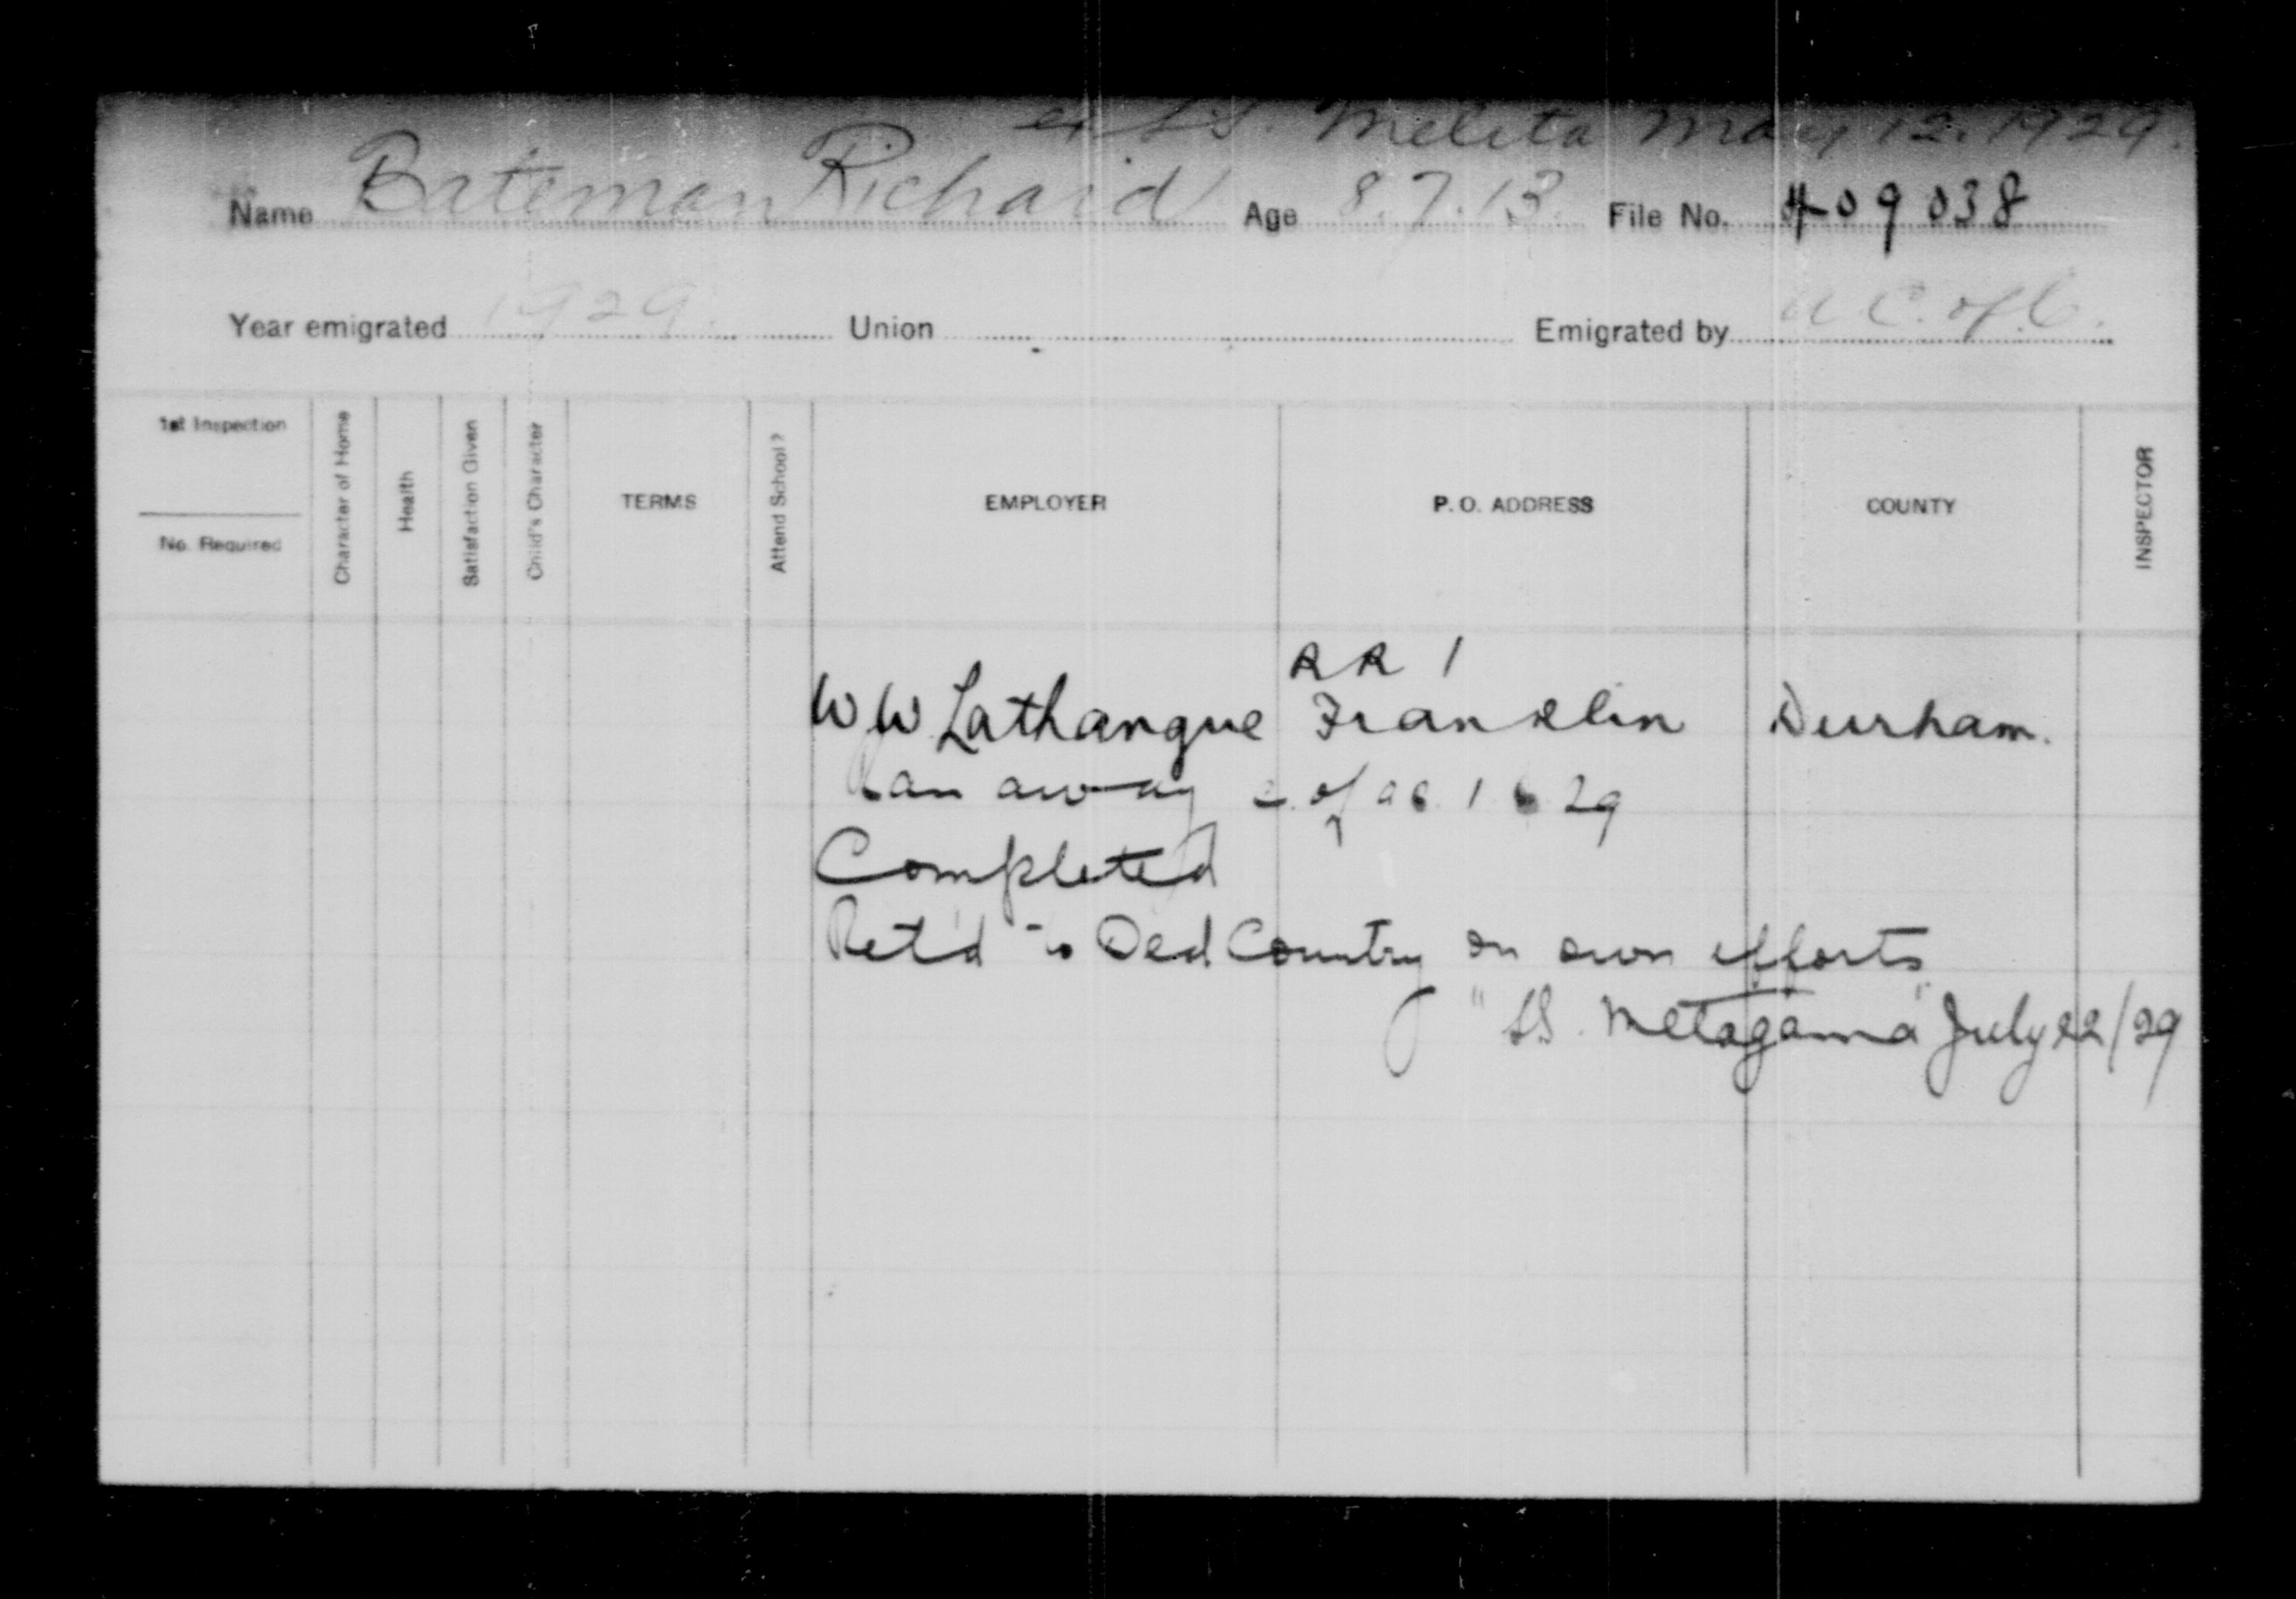 ex S.S. Melita May 12. 1929.
Name Bateman Richard Age 8.7.13. File No. 409038
Year emigrated 1929. Union Emigrated by U.C. of C.
1st Inspection
No. Required
Character of Home
Health
Satisfaction Given
Child's Character
TERMS
Attend School?
EMPLOYER
P. O. ADDRESS
COUNTY
INSPECTOR
RR 1
W W Lathangue Franklin Durham.
Ran away 29
Completed
Ret'd to Old Country on own efforts
"SS. Metagama" July 22/29